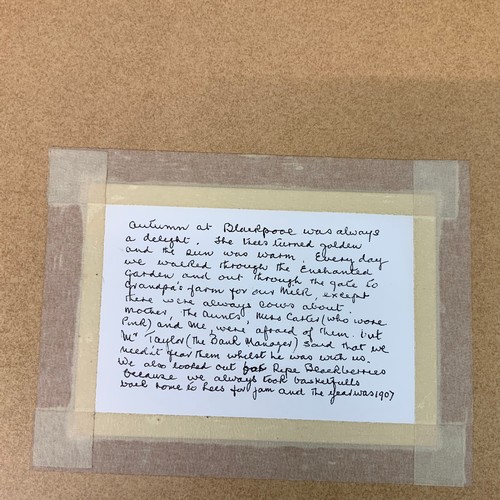 Autumn at Blackpool was always
a delight. The trees turned golden
and the sun was warm. Every day
we walked through the Enchanted
Garden and out through the gate to
Grandpa's farm for our Milk, except
there were always cows about.
Mother, The Aunts, Miss Carter (who wore
Pink) and Me, were afraid of them. but
Mr Taylor (The Bank Manager) said that we
needn't fear them whilst he was with us.
We also looked out for Ripe Blackberries
because we always took basketfulls
back home to for jam and the year was 1907